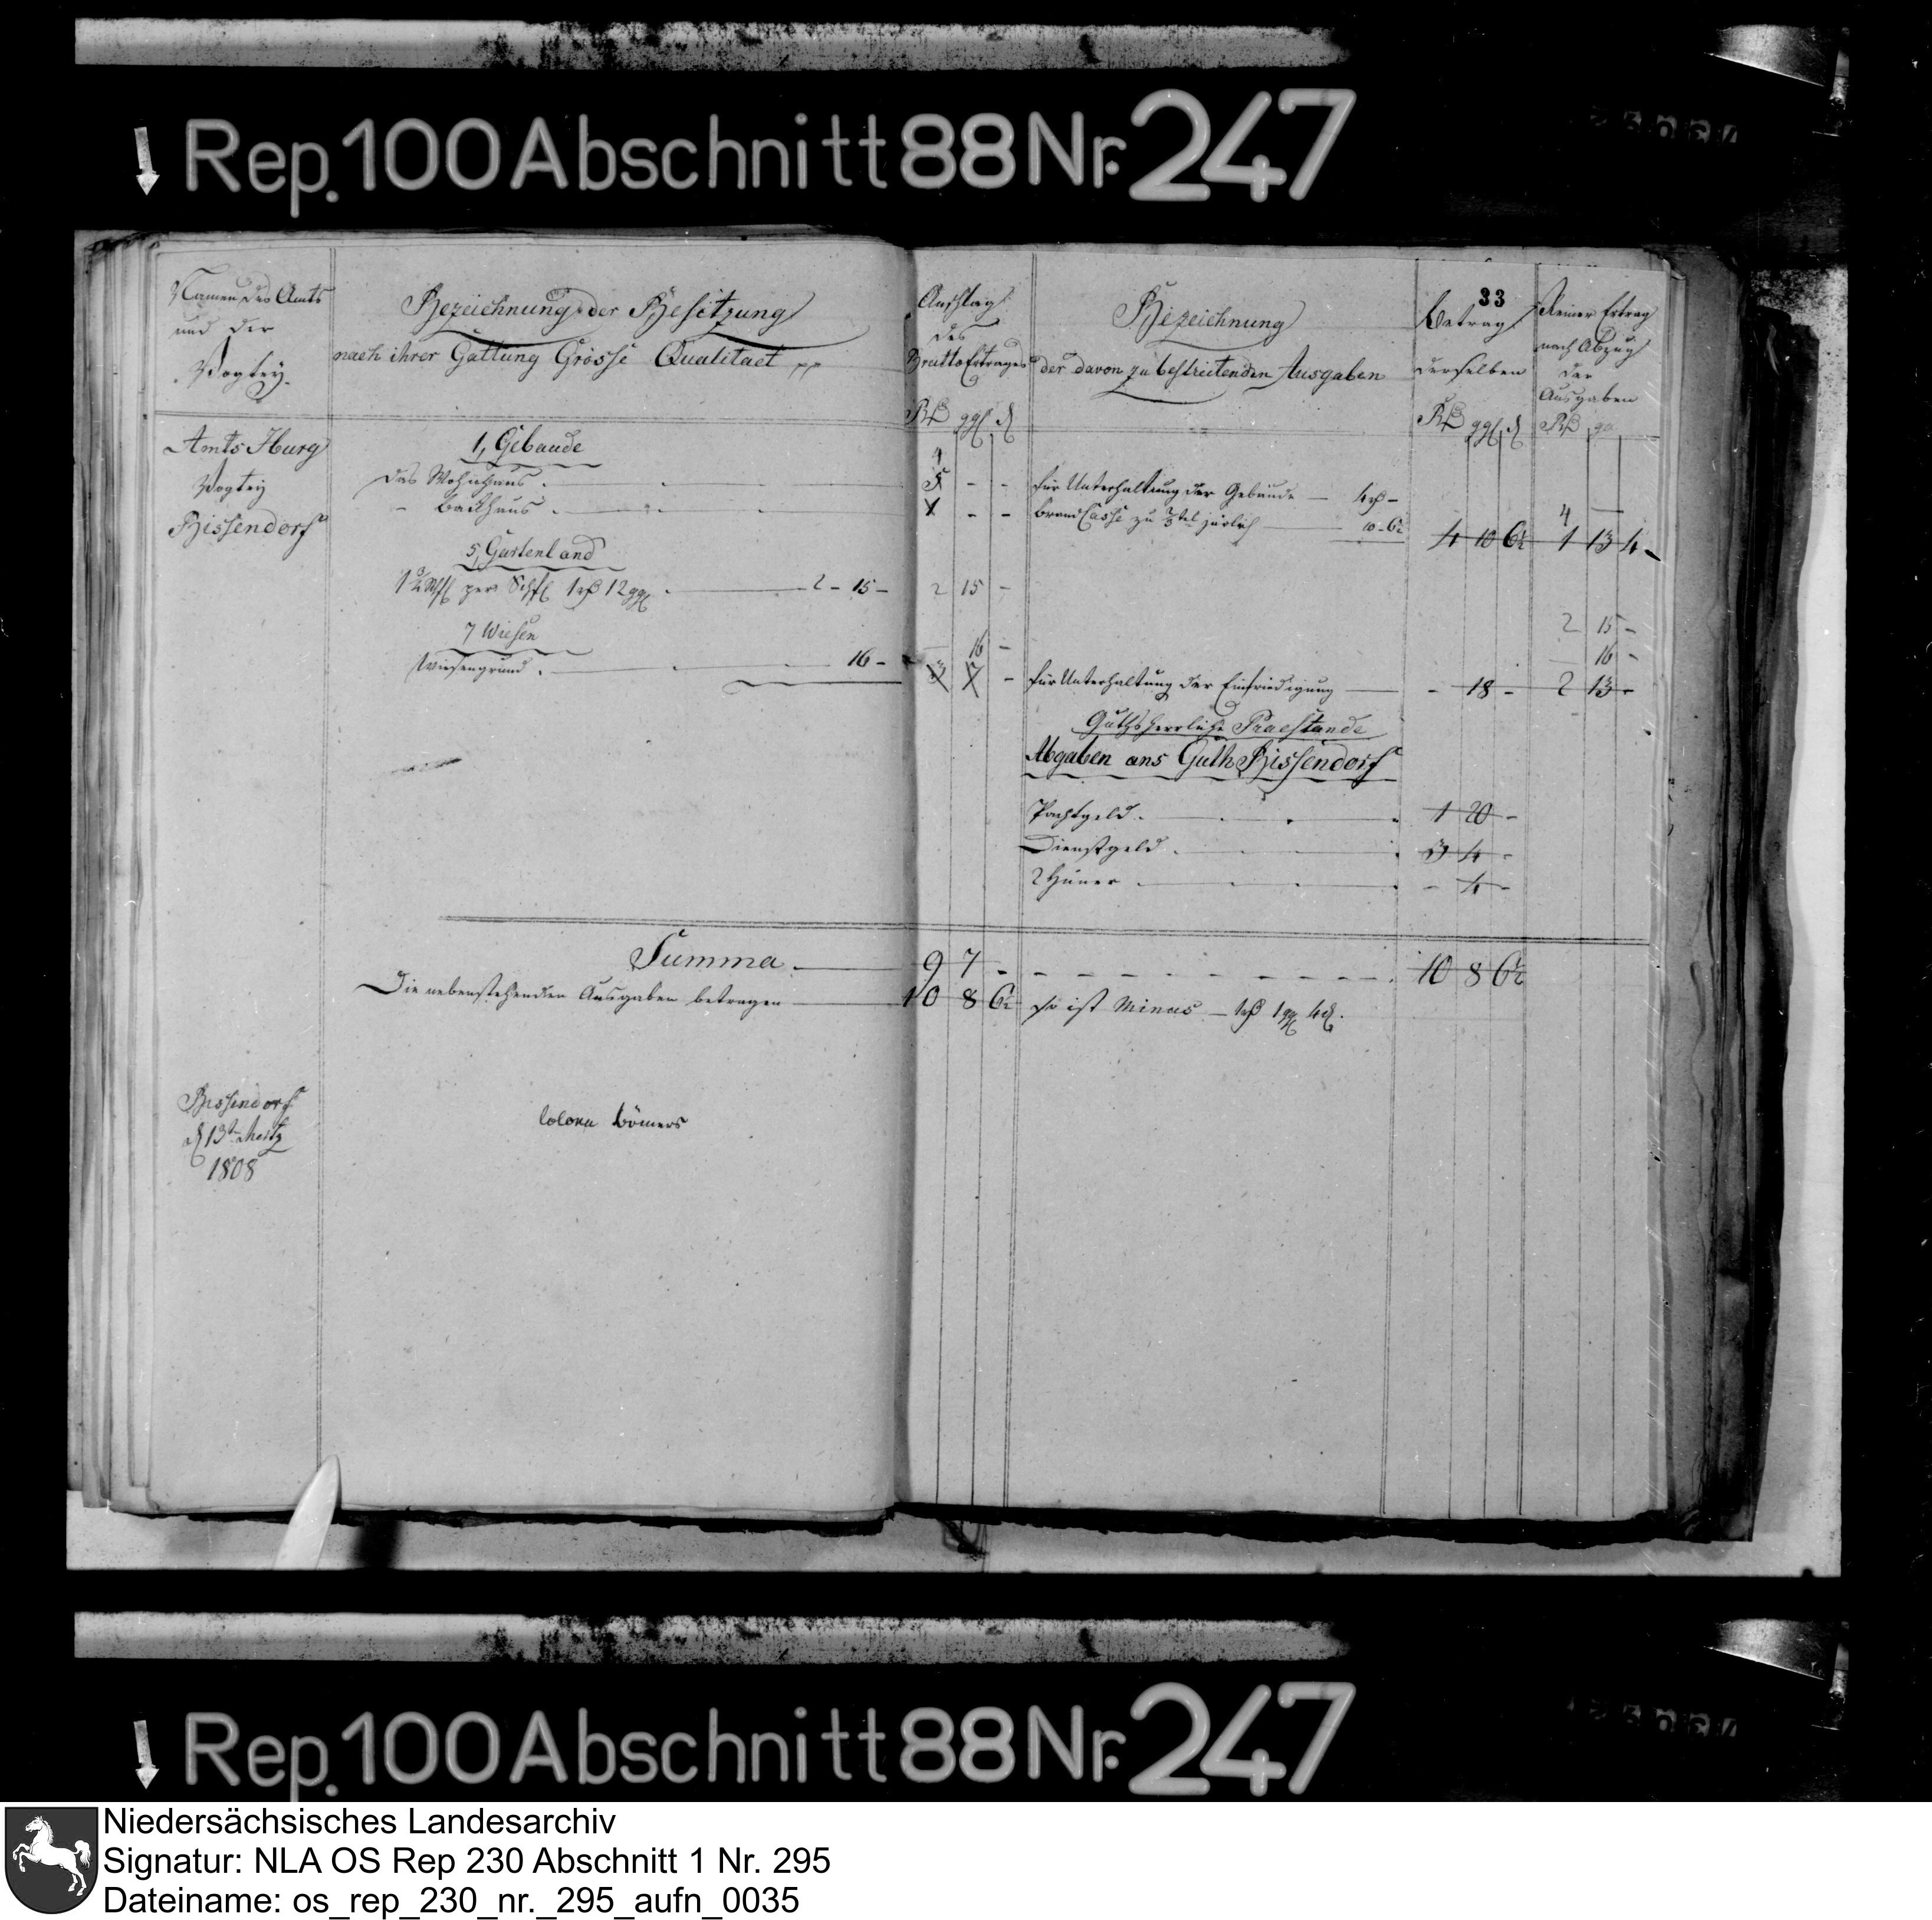 Rep. 100 Abschnitt 88 Nr. 247
33
Namen des Amts
und der
Vogtey.
Bezeichnung der Besitzung
nach ihrer Gattung Grösse Qualitaet pp
Anschlag
des
Brutto Ertrages
Bezeichnung
der davon zu bestreitenden Ausgaben
Betrag
derselben
Reiner Ertrag
nach Abzug
der
Ausgaben
Amts Iburg
Vogtey
Bissendorf
1, Gebäude
4
Das Wohnhaus 5 - -
- Backhaus - -
für Unterhaltung der Gebäude - 4 -
Brand Casse zu järlich 10 - 6½
4 10 6½
4 -
1 13 4 -
5, Gartenland
1¾ Schfl per Schfl 1 12 2 - 15 - 2 15 -
2 15 -
7 Wiesen
Wiesengrund 16 -
16 -
16 -
für Unterhaltung der Einfriedigung - 18 - 2 13 -
Guthsherrliche Praestande
Abgaben ans Guth Bissendorf
Pachtgeld 1 20 -
Dienstgeld 3 4 -
2 Hüner - 4 -
Summa 9 7 - 10 8 6½
Die nebenstehenden Ausgaben betragen 10 8 6½ so ist Minus
Bissendorf
d 13t Mertz
1808
Colona Bömers
Rep. 100 Abschnitt 88 Nr. 247
Niedersächsisches Landesarchiv
Signatur: NLA OS Rep 230 Abschnitt 1 Nr. 295
Dateiname: os_rep_230_nr._295_aufn_0035